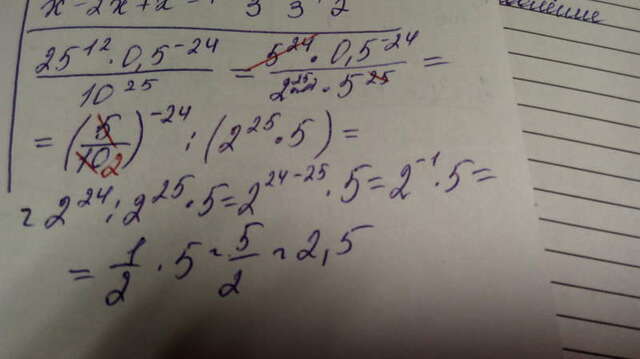 x - 2x + 12 1 3 3 2
25¹² · 0,5⁻²⁴ / 10²⁵ = 5²⁴ · 0,5⁻²⁴ / 2²⁵ · 5²⁵ =
= (5/10 2)⁻²⁴ : (2²⁵ · 5) =
= 2²⁴ : 2²⁵ · 5 = 2²⁴⁻²⁵ · 5 = 2⁻¹ · 5 =
= 1/2 · 5 = 5/2 = 2,5